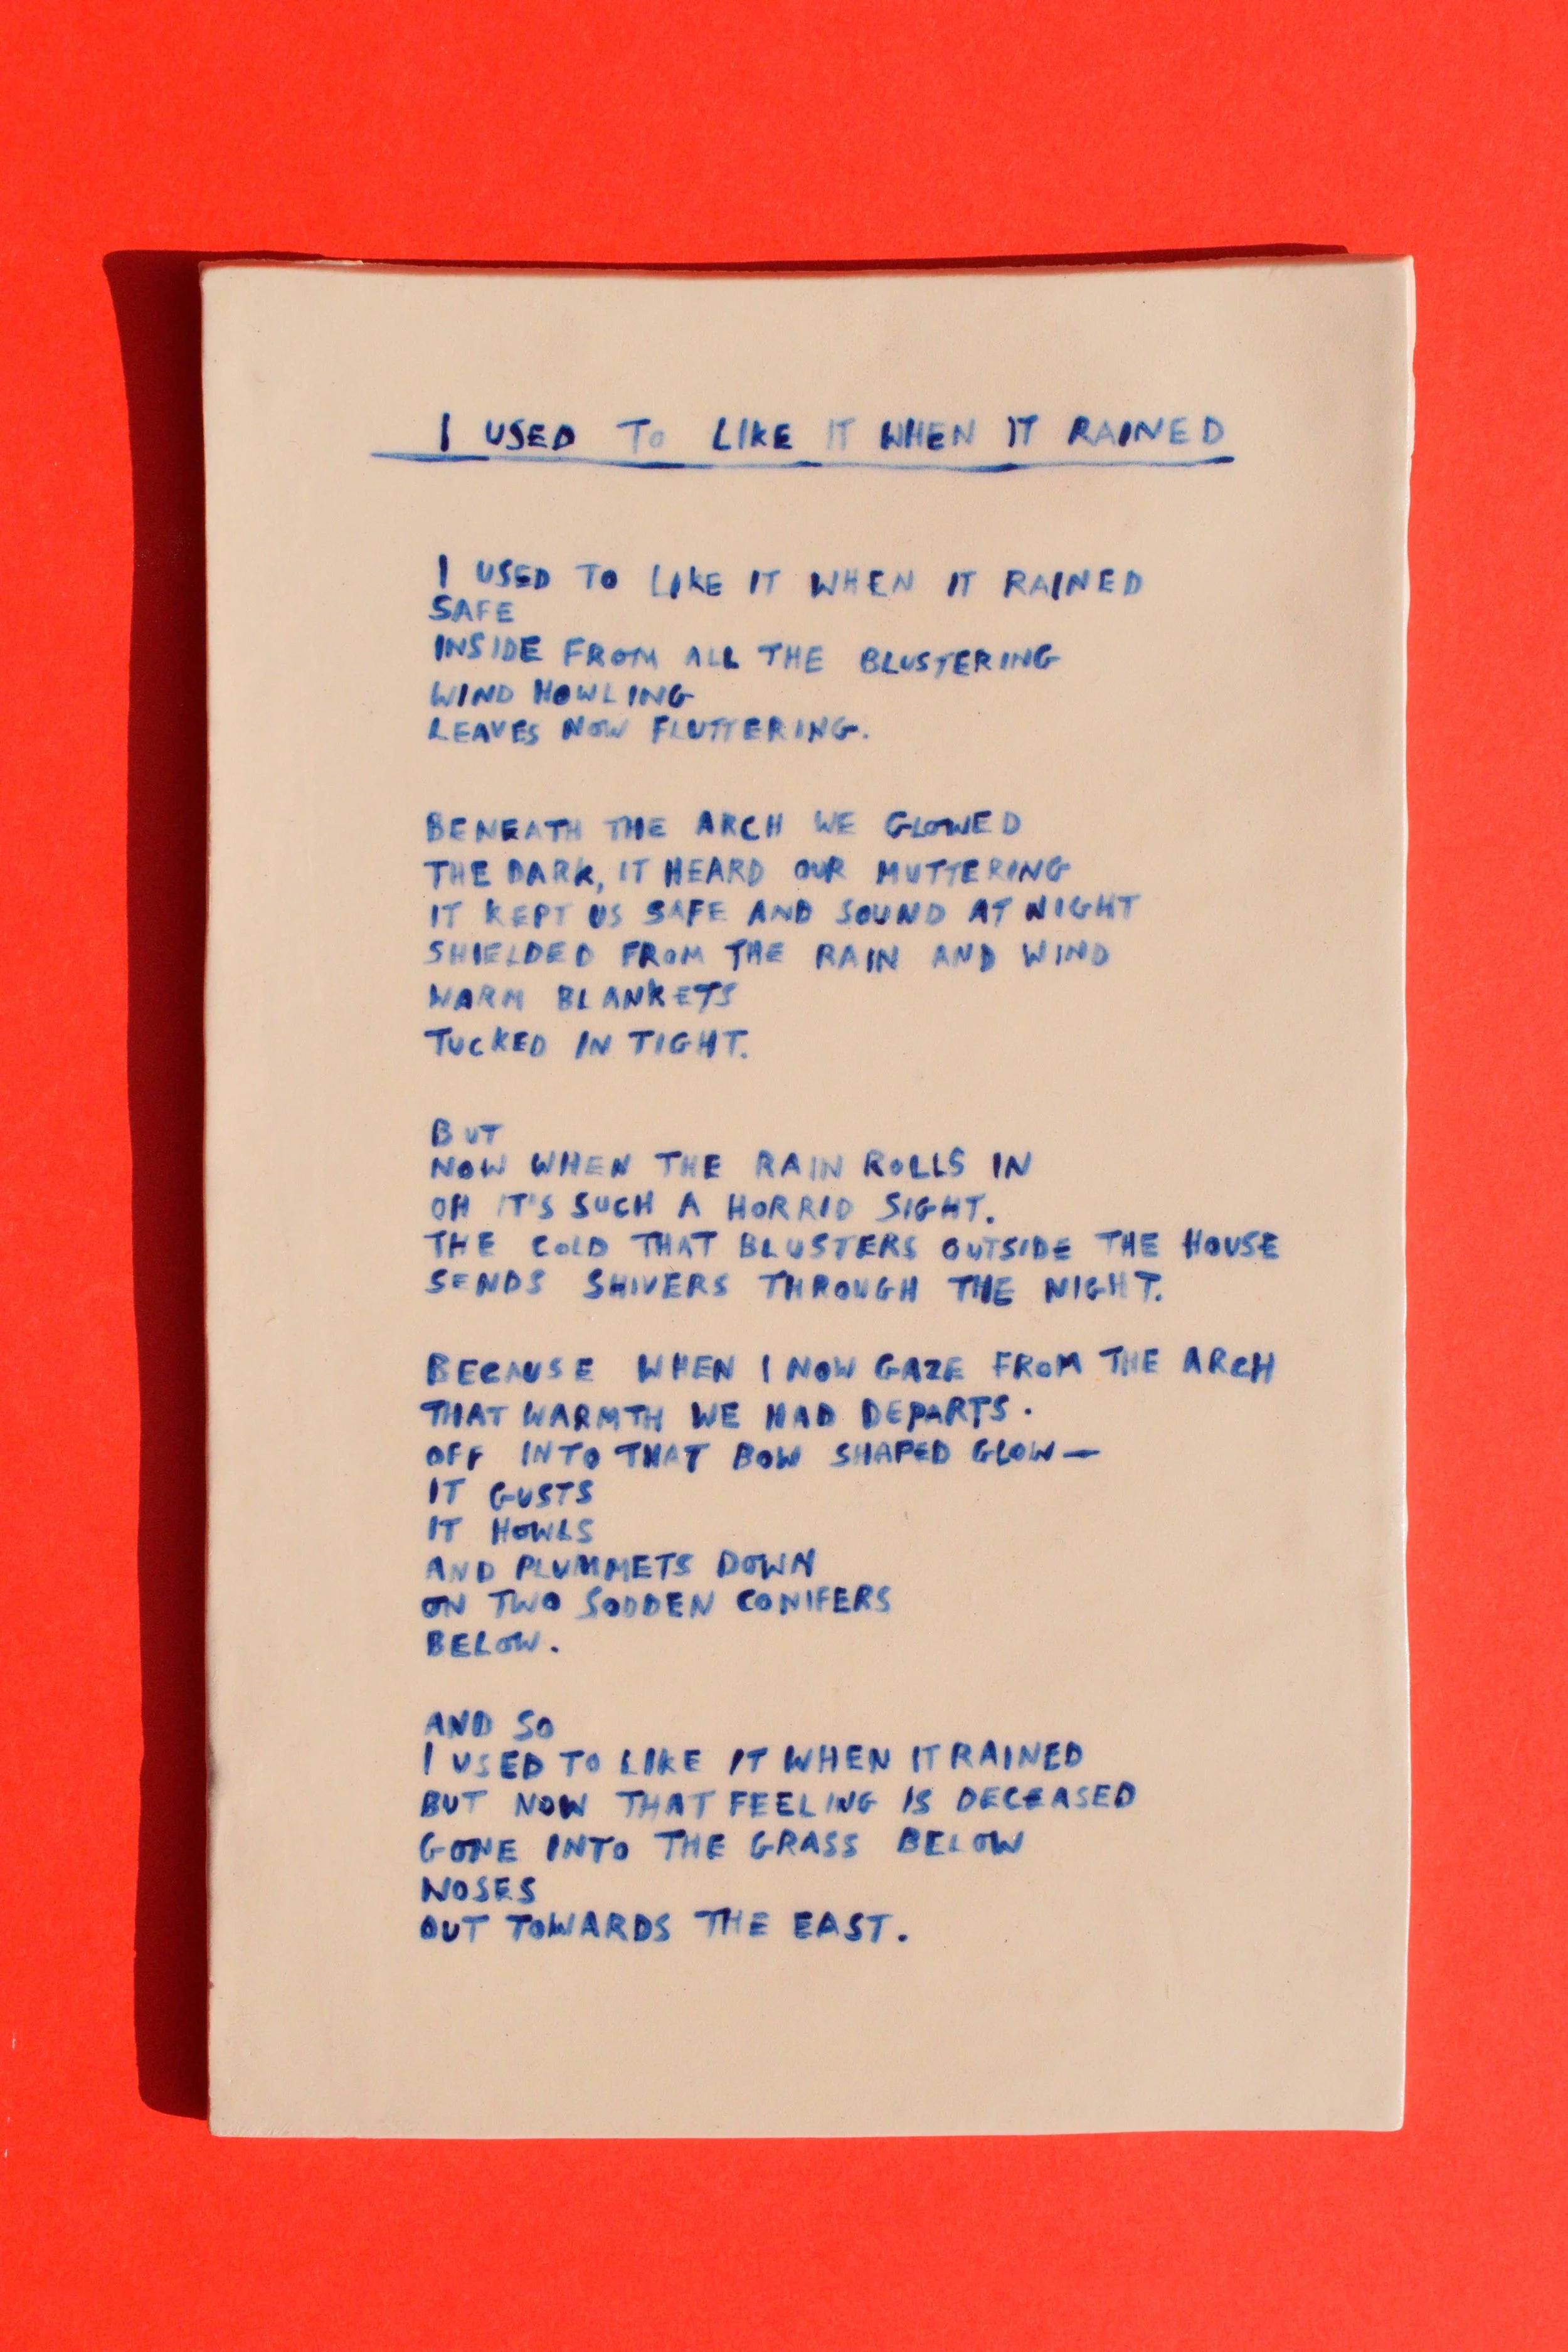 I USED TO LIKE IT WHEN IT RAINED
I USED TO LIKE IT WHEN IT RAINED
SAFE
INSIDE FROM ALL THE BLUSTERING
WIND HOWLING
LEAVES NOW FLUTTERING.
BENEATH THE ARCH WE GLOWED
THE DARK, IT HEARD OUR MUTTERING
IT KEPT US SAFE AND SOUND AT NIGHT
SHIELDED FROM THE RAIN AND WIND
WARM BLANKETS
TUCKED IN TIGHT.
BUT
NOW WHEN THE RAIN ROLLS IN
OH IT'S SUCH A HORRID SIGHT.
THE COLD THAT BLUSTERS OUTSIDE THE HOUSE
SENDS SHIVERS THROUGH THE NIGHT.
BECAUSE WHEN I NOW GAZE FROM THE ARCH
THAT WARMTH WE HAD DEPARTS.
OFF INTO THAT BOW SHAPED GLOW—
IT GUSTS
IT HOWLS
AND PLUMMETS DOWN
ON TWO SODDEN CONIFERS
BELOW.
AND SO
I USED TO LIKE IT WHEN IT RAINED
BUT NOW THAT FEELING IS DECEASED
GONE INTO THE GRASS BELOW
NOSES
OUT TOWARDS THE EAST.